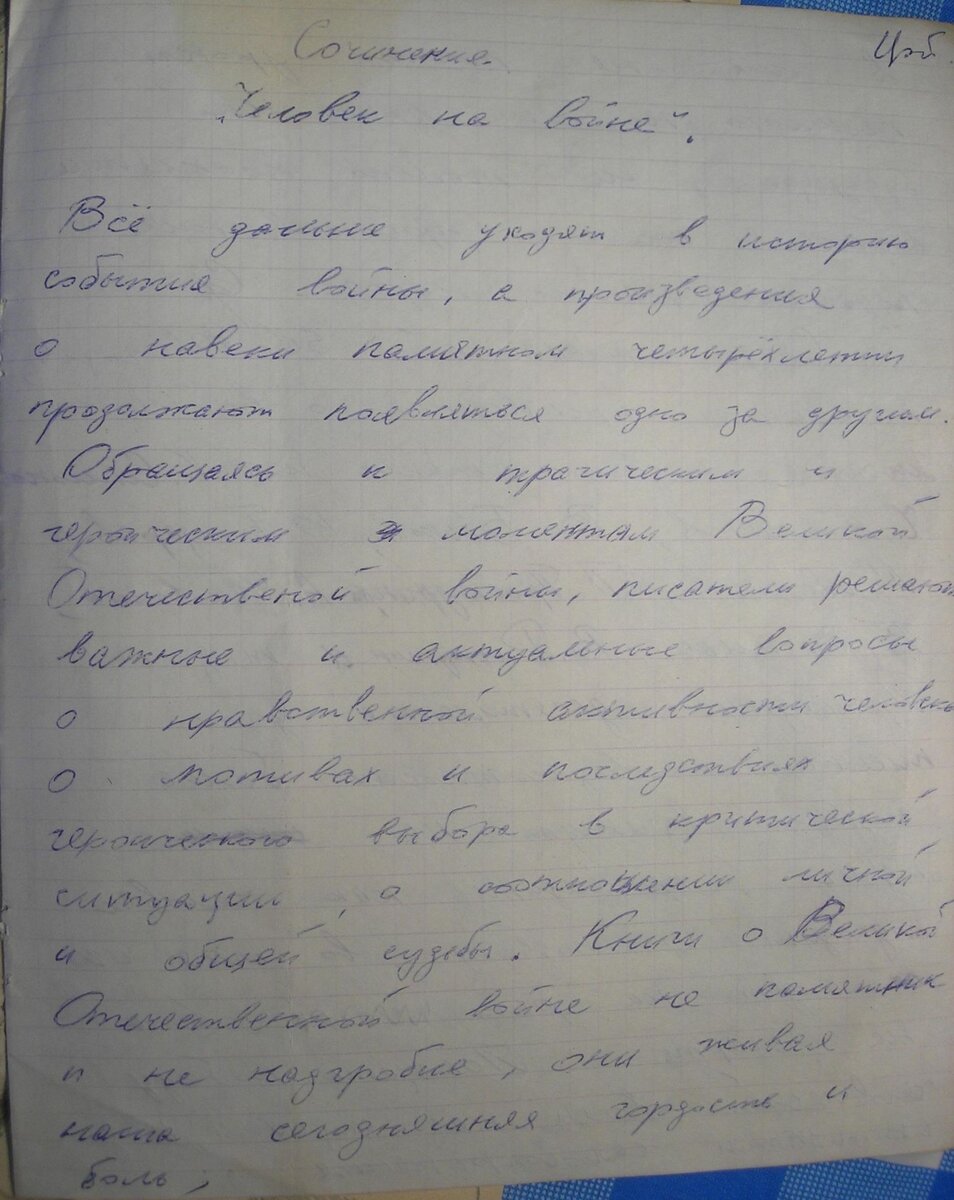 Сочинение.
„Человек на войне".
Всё дальше уходят в историю
события войны, а произведения
о навеки памятном четырёхлетии
продолжают появляться одно за другим.
Обращаясь к трагическим и
героическим моментам Великой
Отечественой войны, писатели решают
важные и актуальные вопросы
о нравственной активности человека
о мотивах и последствиях
героического выбора в критической
ситуации, о соотношении личной
и общей судьбы. Книги о Великой
Отечественной войне не памятник
и не надгробие, они живая
наша сегодняшняя гордость и
боль,